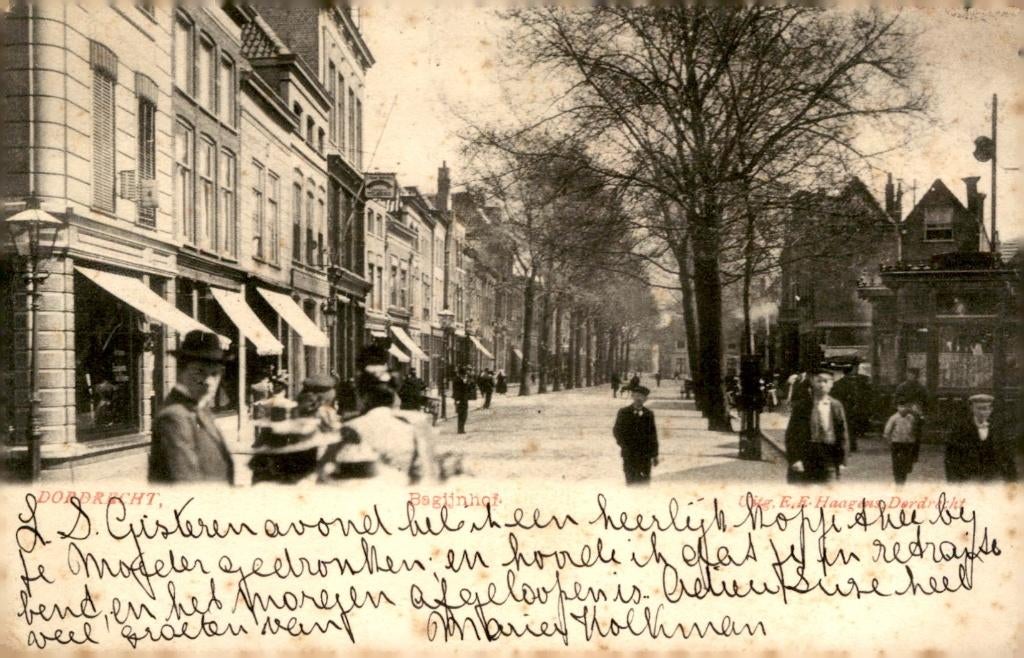 DORDRECHT, Bagijnhof. Uitg. E. E. Haagens, Dordrecht
L. S. Gisteren avond heb ik een heerlijk kopje thee bij
je Moeder gedronken, en hoorde ik dat je in
bend, en het morgen afgeloopen is. Adieu Suze heel
veel groeten van Marie Kolkman